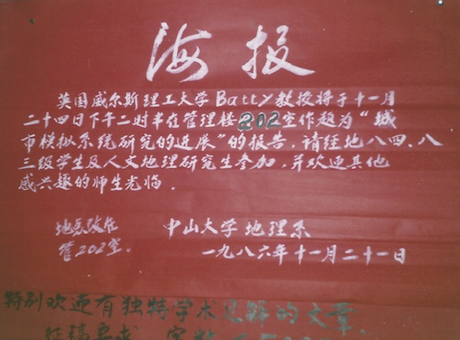 海报
英国威尔斯理工大学Batty教授将于十一月
二十四日下午二时半在管理楼202室作题为“城
市模拟系统研究的进展”的报告，请经地八四、八
三级学生及人文地理研究生参加，并欢迎其他
感兴趣的师生光临．
地点改在
管202室．
中山大学地理系
一九八六年十一月二十一日
特别欢迎有独特学术见解的文章，